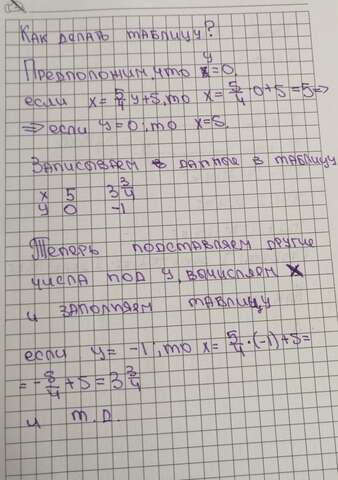 Как делать таблицу?
Предположим, что y=0,
если x=5/4y+5, то x=5/4·0+5=5=>
=> если y=0, то x=5.
Записываем данные в таблицу
x 5 3 3/4
y 0 -1
Теперь подставляем другие
числа под y, вычисляем x
и заполняем таблицу
если y= -1, то x= 5/4·(-1)+5=
=-5/4+5=3 3/4
и т.д.